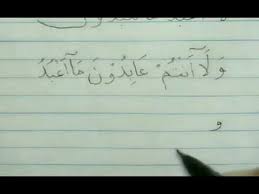 وَلَآ أَنْتُمْ عَابِدُوْنَ مَآ أَعْبُدُ
و